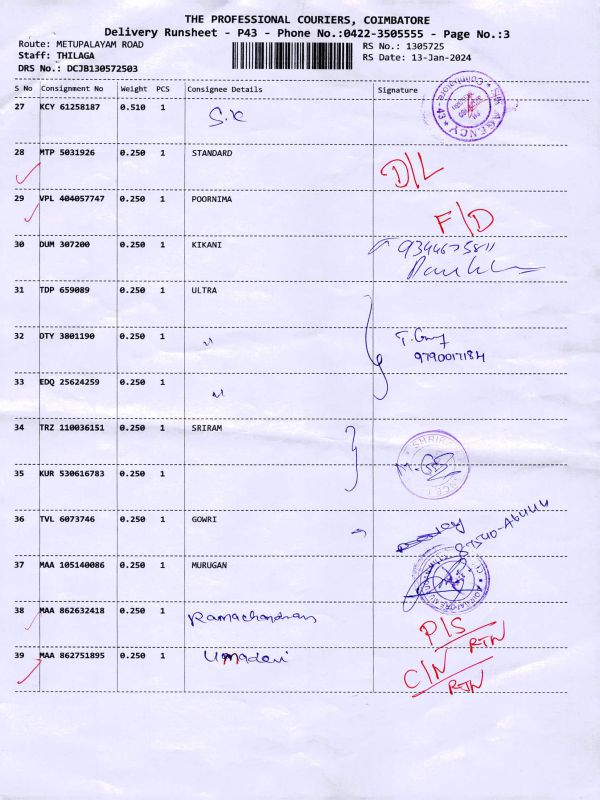 THE PROFESSIONAL COURIERS, COIMBATORE
Delivery Runsheet - P43 - Phone No.:0422-3505555 - Page No.:3
Route: METUPALAYAM ROAD
RS No.: 1305725
Staff: THILAGA
RS Date: 13-Jan-2024
DRS No.: DCJB130572503
S No Consignment No Weight PCS Consignee Details Signature
27 KCY 61258187 0.510 1 S.K
SK AGENCY
28 MTP 5031926 0.250 1 STANDARD D/L
29 VPL 404057747 0.250 1 POORNIMA F/D
30 DUM 307200 0.250 1 KIKANI
31 TDP 659089 0.250 1 ULTRA
32 DTY 3801190 0.250 1 "
9790017184
33 EDQ 25624259 0.250 1 "
34 TRZ 110036151 0.250 1 SRIRAM
35 KUR 530616783 0.250 1
36 TVL 6073746 0.250 1 GOWRI
37 MAA 105140086 0.250 1 MURUGAN
38 MAA 862632418 0.250 1 Ramachandran P/S RTN
39 MAA 862751895 0.250 1 Umadevi C/N RTN